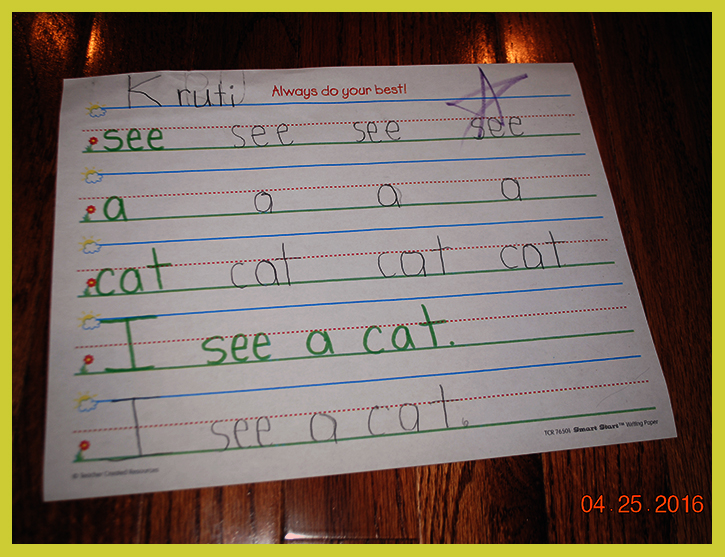 Kruti Always do your best!
see see see see
a a a a
cat cat cat cat
I see a cat.
I see a cat.
TCR 76501 Smart Start™ Writing Paper
© Teacher Created Resources
04.25.2016